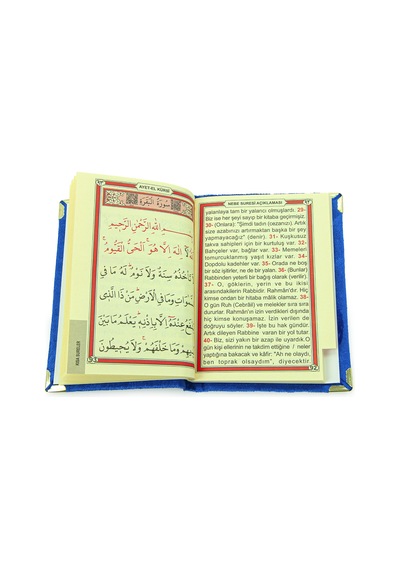 AYET-EL KÜRSİ
سورة البقرة
بسم الله الرحمن الرحيم
لا اله الا هو الحي القيوم
تأخذه سنة ولا نوم له ما في
السموات وما في الارض من ذا الذي
يشفع عنده الا باذنه يعلم ما بين
ايديهم وما خلفهم ولا يحيطون
KISA SURELER
91
NEBE SURESİ AÇIKLAMASI
yalanlaya tam bir yalancı olmuşlardı. 29-
Biz ise her şeyi sayıp bir kitaba geçirmişiz.
30- (Onlara): "Şimdi tadın (cezanızı). Artık
size azabınızı artırmaktan başka bir şey
yapmayacağız" (denir). 31- Kuşkusuz
takva sahipleri için bir kurtuluş var. 32-
Bahçeler var, bağlar var. 33- Memeleri
tomurcuklanmış yaşıt kızlar var. 34-
Dopdolu kadehler var. 35- Orada ne boş
bir söz işitirler, ne de bir yalan. 36- (Bunlar)
Rabbinden yeterli bir karşılık olarak verilir.
37- O, göklerin, yerin ve bu ikisi
arasındakilerin Rabbidir. Rahmân'dır. Hiç
kimse ondan bir hitaba mâlik olamaz. 38-
O gün Ruh (Cebrâil) ve melekler sıra sıra
dururlar. Rahmân'ın izin verdikleri dışında
hiç kimse konuşamaz. İzin verilen de
doğruyu söyler. 39- İşte bu hak gündür.
Artık dileyen Rabbine varan bir yol tutar.
40- Biz, sizi yakın bir azap ile uyardık.O
gün kişi ellerinin ne takdim ettiğine / neler
yaptığına bakacak ve kâfir: "Ah ne olaydı,
ben toprak olsaydım", diyecektir
92